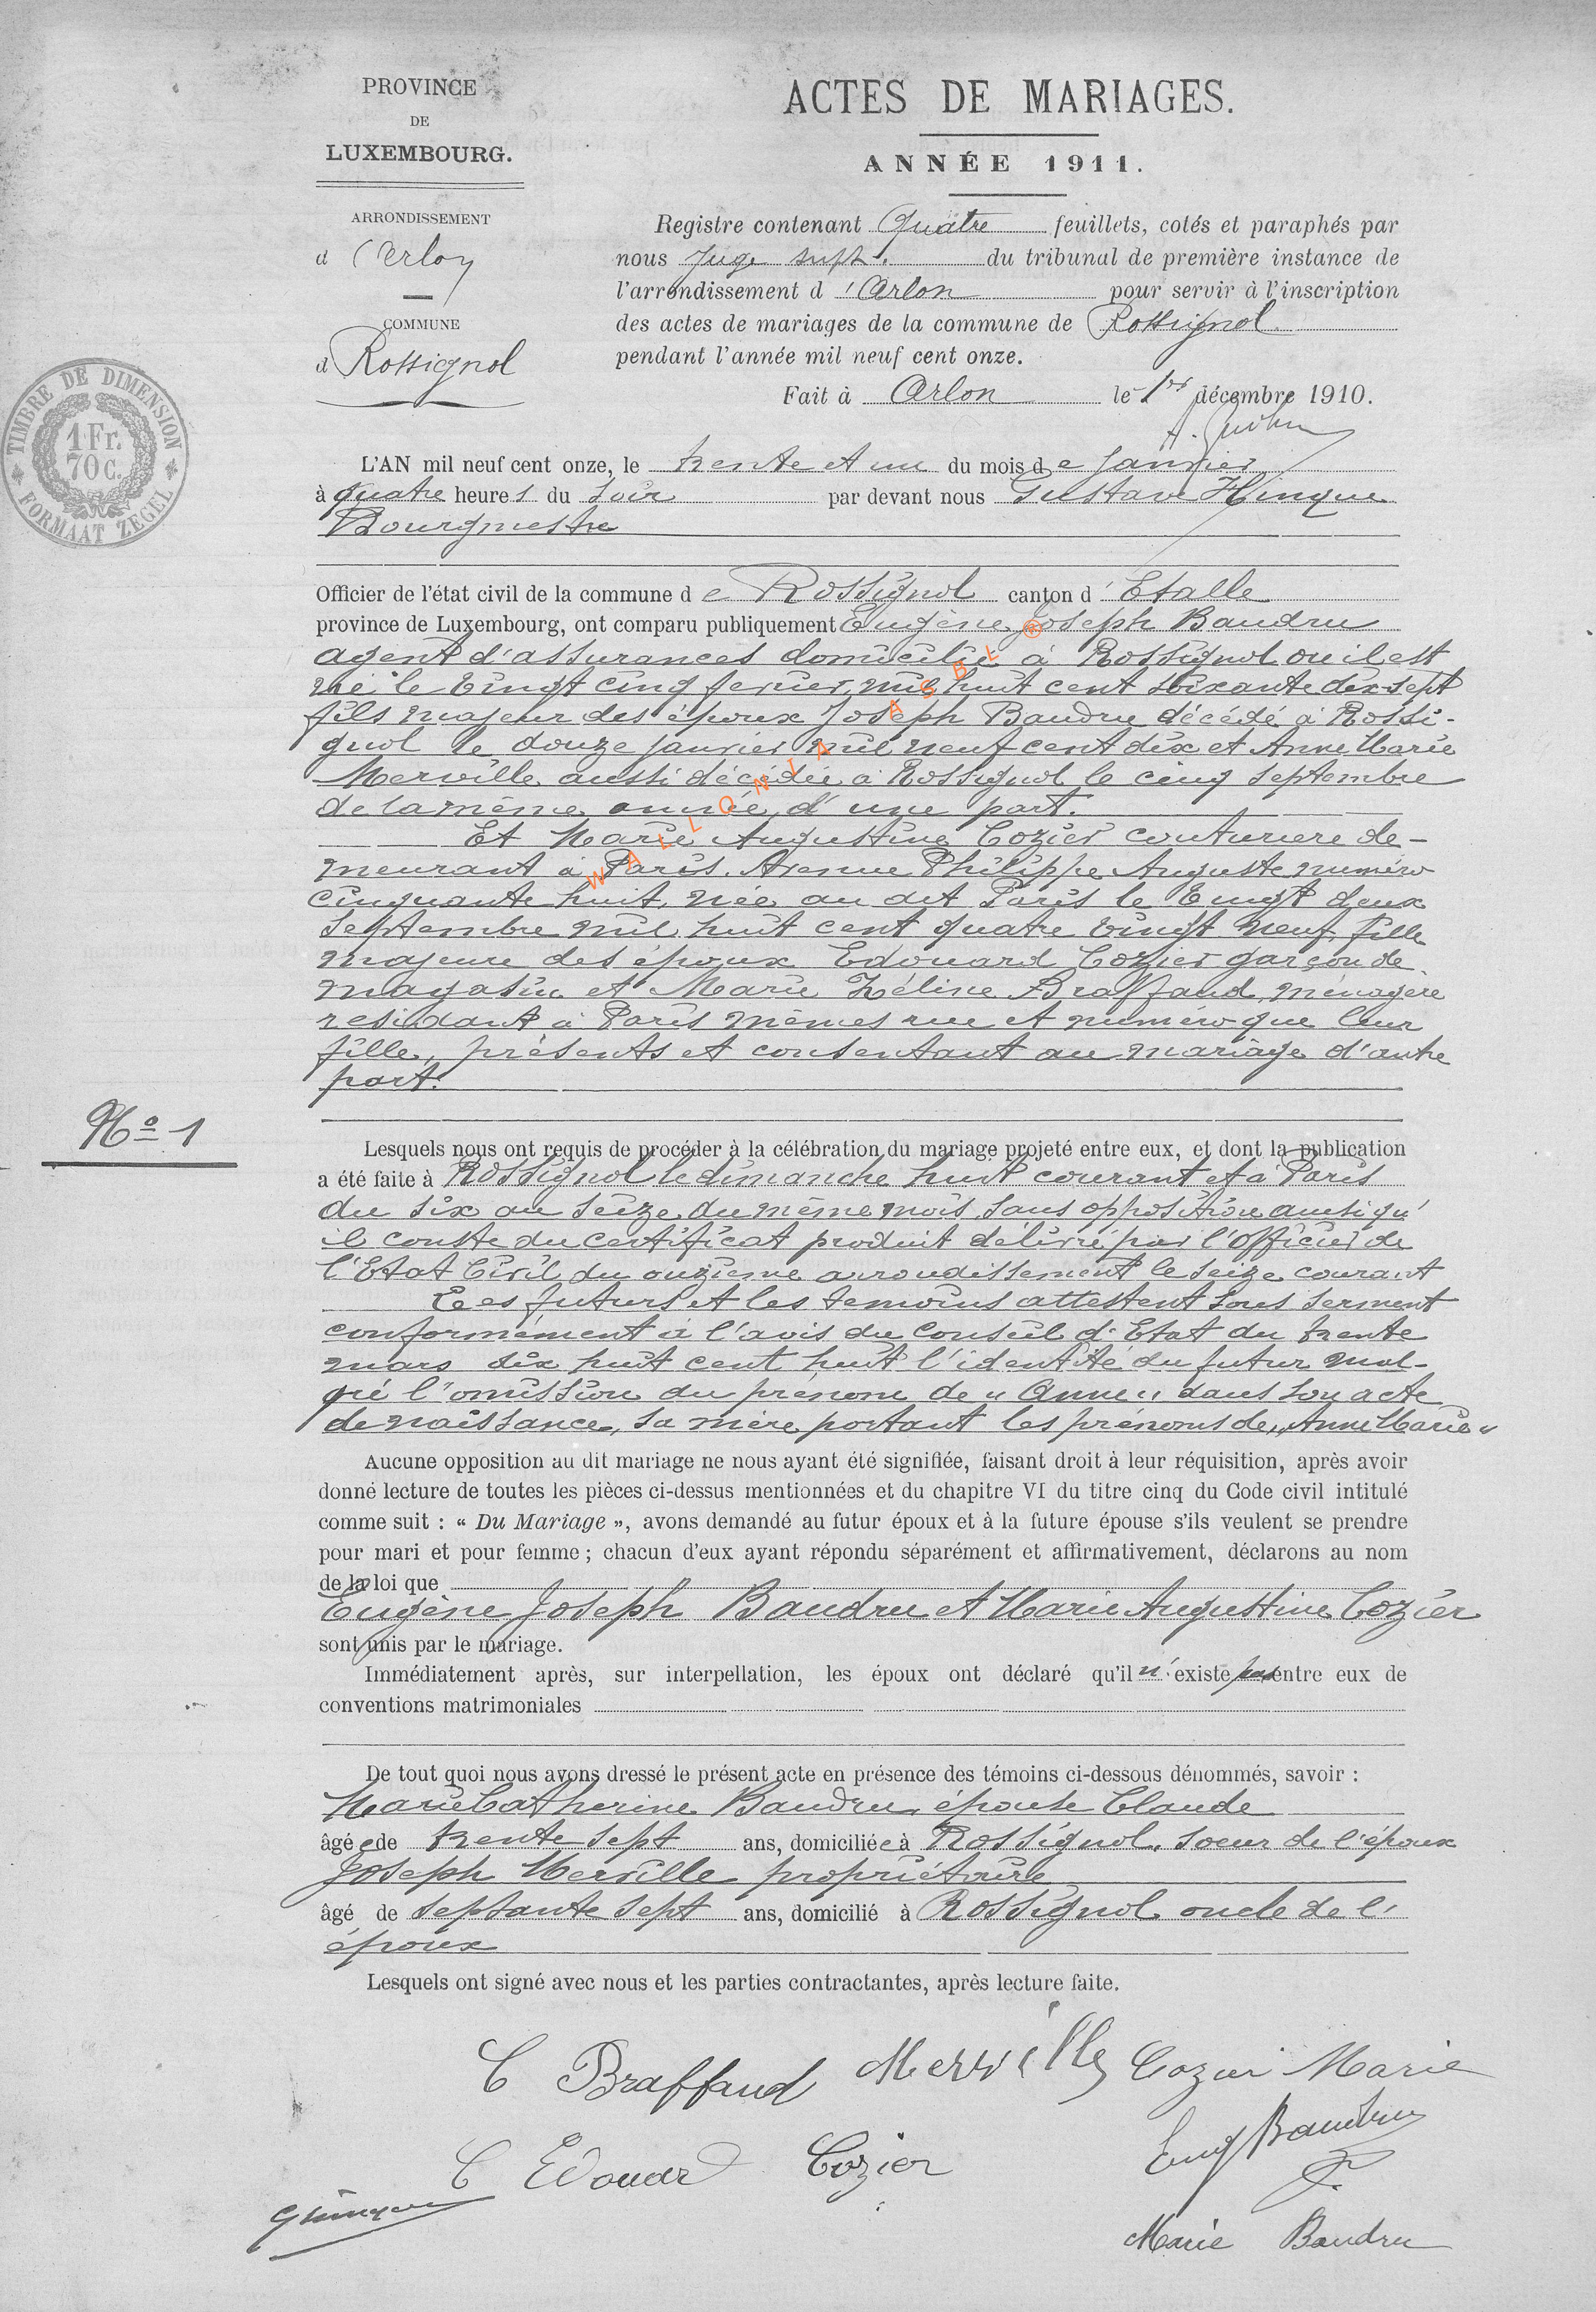 PROVINCE
DE
LUXEMBOURG.
ARRONDISSEMENT
d'Arlon
COMMUNE
d Rossignol
TIMBRE DE DIMENSION
1 Fr.
70 C.
FORMAAT ZEGEL
ACTES DE MARIAGES.
ANNÉE 1911.
Registre contenant Quatre feuillets, cotés et paraphés par
nous Juge supl. du tribunal de première instance de
l'arrondissement d'Arlon pour servir à l'inscription
des actes de mariages de la commune de Rossignol
pendant l'année mil neuf cent onze.
Fait à Arlon le 1er décembre 1910.
L'AN mil neuf cent onze, le trente et un du mois de Janvier
à quatre heures du soir par devant nous Gustave Hinque
Bourgmestre
Officier de l'état civil de la commune de Rossignol canton d'Etalle
province de Luxembourg, ont comparu publiquement Eugène Joseph Baudru
agent d'assurances domicilié à Rossignol ou il est
né le vingt cinq fevrier, mil huit cent soixante dix-sept
fils majeur des époux Joseph Baudru décédé à Rossi-
gnol le douze janvier mil neuf cent dix et Anne Marie
Merville aussi décédée à Rossignol le cinq septembre
de la même année, d'une part.
Et Marie Augustine Cozier couturiere de-
meurant à Paris. Avenue Philippe Auguste numéro
cinquante huit, née au dit Paris le vingt deux
septembre mil huit cent quatre vingt neuf, fille
majeure des époux Edouard Cozier garçon de
magasin et Marie Zéline Braffaud, ménagère
residant à Paris mêmes rue et numéro que leur
fille, présents et consentant au mariage d'autre
part.
WALLONIA ASBL ®
No 1
Lesquels nous ont requis de procéder à la célébration du mariage projeté entre eux, et dont la publication
a été faite à Rossignol le dimanche huit courant et à Paris
du six au seize du même mois, sans opposition ainsi qu'
il conste du certificat produit délivré par l'Officier de
l'Etat Civil du onzieme arrondissement le seize courant
Les futurs et les temoins attestent sous serment
conformément à l'avis du Conseil d'Etat du trente
mars dix huit cent huit l'identité du futur mal-
gré l'omission du prénom de "Anne" dans son acte
de naissance, sa mère portant les prénoms de "Anne Marie"
Aucune opposition au dit mariage ne nous ayant été signifiée, faisant droit à leur réquisition, après avoir
donné lecture de toutes les pièces ci-dessus mentionnées et du chapitre VI du titre cinq du Code civil intitulé
comme suit : « Du Mariage », avons demandé au futur époux et à la future épouse s'ils veulent se prendre
pour mari et pour femme ; chacun d'eux ayant répondu séparément et affirmativement, déclarons au nom
de la loi que
Eugène Joseph Baudru et Marie Augustine Cozier
sont unis par le mariage.
Immédiatement après, sur interpellation, les époux ont déclaré qu'il n'existe pas entre eux de
conventions matrimoniales
De tout quoi nous avons dressé le présent acte en présence des témoins ci-dessous dénommés, savoir :
Marie Catherine Baudru, épouse Claude
âgée de trente sept ans, domiciliée à Rossignol. soeur de l'époux
Joseph Merville propriétaire
âgé de septante sept ans, domicilié à Rossignol oncle de l'
époux
Lesquels ont signé avec nous et les parties contractantes, après lecture faite.
C Braffaud Merville Cozier Marie
Eug Baudru
C Edouard Cozier
GHinque
Marie Baudru